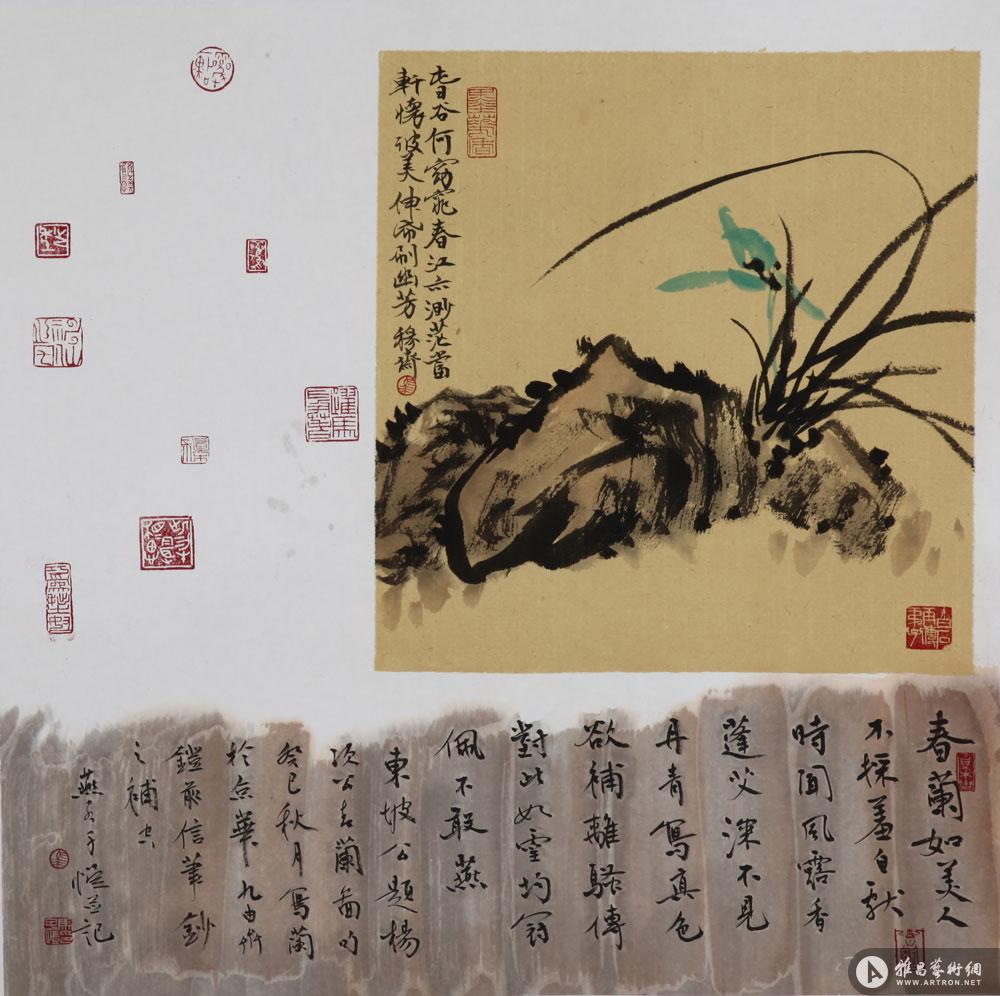 谷何窈窕春江亦渺茫當
軒懷彼美伸帋刷幽芳穆齋
春蘭如美人
不採羞自獻
時聞風露香
蓬艾深不見
丹青寫真色
欲補離騷傳
對此如靈均冠
佩不敢燕
東坡公題楊
次公春蘭圖句
癸巳秋月寫蘭
於京華九由齋
鐙前信筆鈔
之補空
燕子並記
雅昌藝術網
WWW.ARTRON.NET